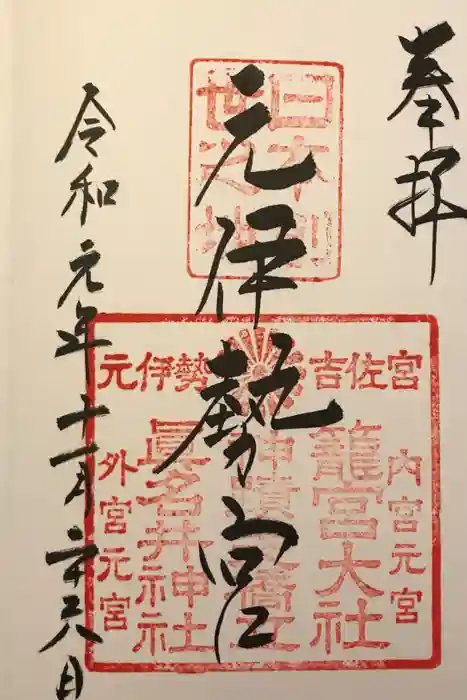 奉拝
日本創
世之地
元伊勢宮
吉佐宮
元伊勢
内宮元宮
籠宮大社
眞名井神社
外宮元宮
令和元年十一月二十六日